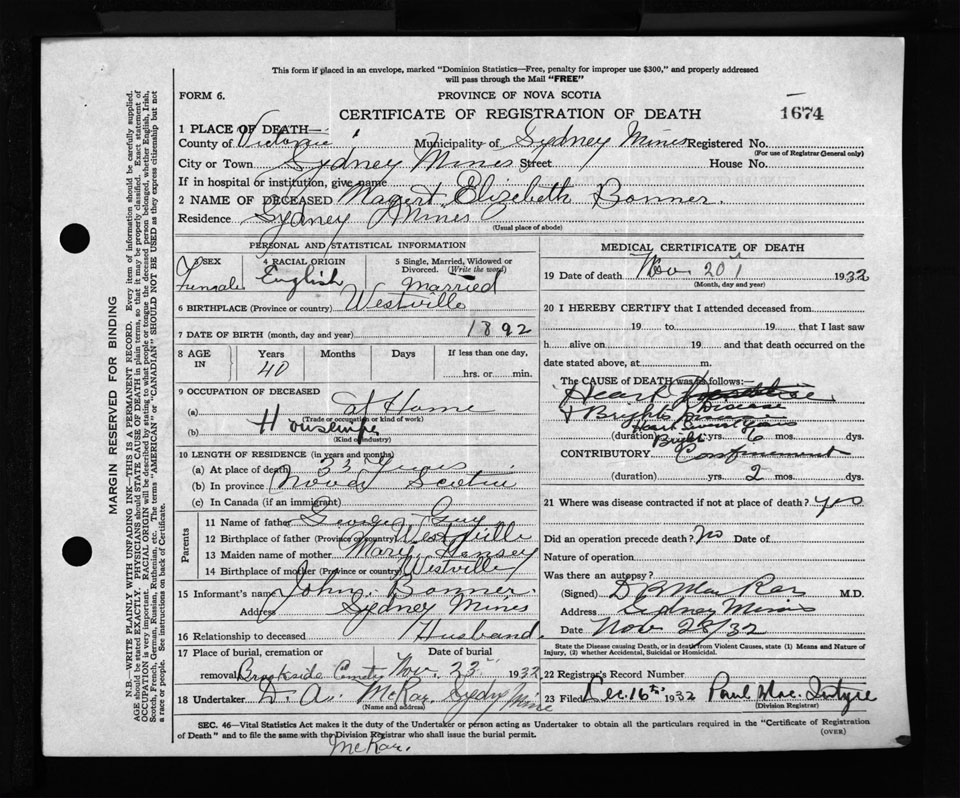 This form if placed in an envelope, marked "Dominion Statistics—Free, penalty for improper use $300," and properly addressed
will pass through the Mail "FREE"
FORM 6.
PROVINCE OF NOVA SCOTIA
CERTIFICATE OF REGISTRATION OF DEATH
1674
1 PLACE OF DEATH—
County of Municipality of Sydney Mines Registered No.
(For use of Registrar General only)
City or Town Sydney Mines Street House No.
If in hospital or institution, give name
2 NAME OF DECEASED Elizebeth Bonner.
Residence Sydney Mines
(Usual place of abode)
PERSONAL AND STATISTICAL INFORMATION
3 SEX
4 RACIAL ORIGIN English
5 Single, Married, Widowed or Divorced. (Write the word) Married
6 BIRTHPLACE (Province or country) Westville
7 DATE OF BIRTH (month, day and year) 1892
8 AGE IN Years Months Days If less than one day,
40 hrs. or min.
9 OCCUPATION OF DECEASED
(a) at Home
(Trade or occupation or kind of work)
(b)
(Kind of industry)
10 LENGTH OF RESIDENCE (in years and months)
(a) At place of death 33 Years
(b) In province Nova Scotia
(c) In Canada (if an immigrant)
Parents
11 Name of father George Guy
12 Birthplace of father (Province or country) Westville
13 Maiden name of mother Mary
14 Birthplace of mother (Province or country) Westville
15 Informant's name John Bonner.
Address Sydney Mines
16 Relationship to deceased Husband.
17 Place of burial, cremation or removal Date of burial
Brookside Nov. 23 1932
18 Undertaker D. A. McKay.
(Name and address)
MEDICAL CERTIFICATE OF DEATH
19 Date of death Nov 20 1932
(Month, day and year)
20 I HEREBY CERTIFY that I attended deceased from
19 to 19 that I last saw
h alive on 19 and that death occurred on the
date stated above, at m.
The CAUSE OF DEATH was as follows:—
Heart
Disease
& Brights
(duration) yrs. 6 mos. dys.
CONTRIBUTORY Confinement
(duration) yrs. 2 mos. dys.
21 Where was disease contracted if not at place of death? yes
Did an operation precede death? no Date of
Nature of operation
Was there an autopsy?
(Signed) M.D.
Address Sydney Mines
Date Nov 28/32
State the Disease causing Death, or in death from Violent Causes, state (1) Means and Nature of
Injury, (2) whether Accidental, Suicidal or Homicidal.
22 Registrar's Record Number
23 Filed Dec. 16th 1932 Paul Mac. Intyre
(Division Registrar)
SEC. 46—Vital Statistics Act makes it the duty of the Undertaker or person acting as Undertaker to obtain all the particulars required in the "Certificate of Registration
of Death" and to file the same with the Division Registrar who shall issue the burial permit.
(OVER)
McKay.
MARGIN RESERVED FOR BINDING
N.B.—WRITE PLAINLY WITH UNFADING INK—THIS IS A PERMANENT RECORD. Every item of information should be carefully supplied.
AGE should be stated EXACTLY. PHYSICIANS should STATE CAUSE OF DEATH in plain terms, so that it may be properly classified. Exact statement of
OCCUPATION is very important. RACIAL ORIGIN will be described by stating to what people or tongue the deceased person belonged, whether English, Irish,
Scotch, French, German, Russian, Ruthenian, etc. The terms "AMERICAN" or "CANADIAN" SHOULD NOT BE USED as they express citizenship but not
a race or people. See instructions on back of Certificate.